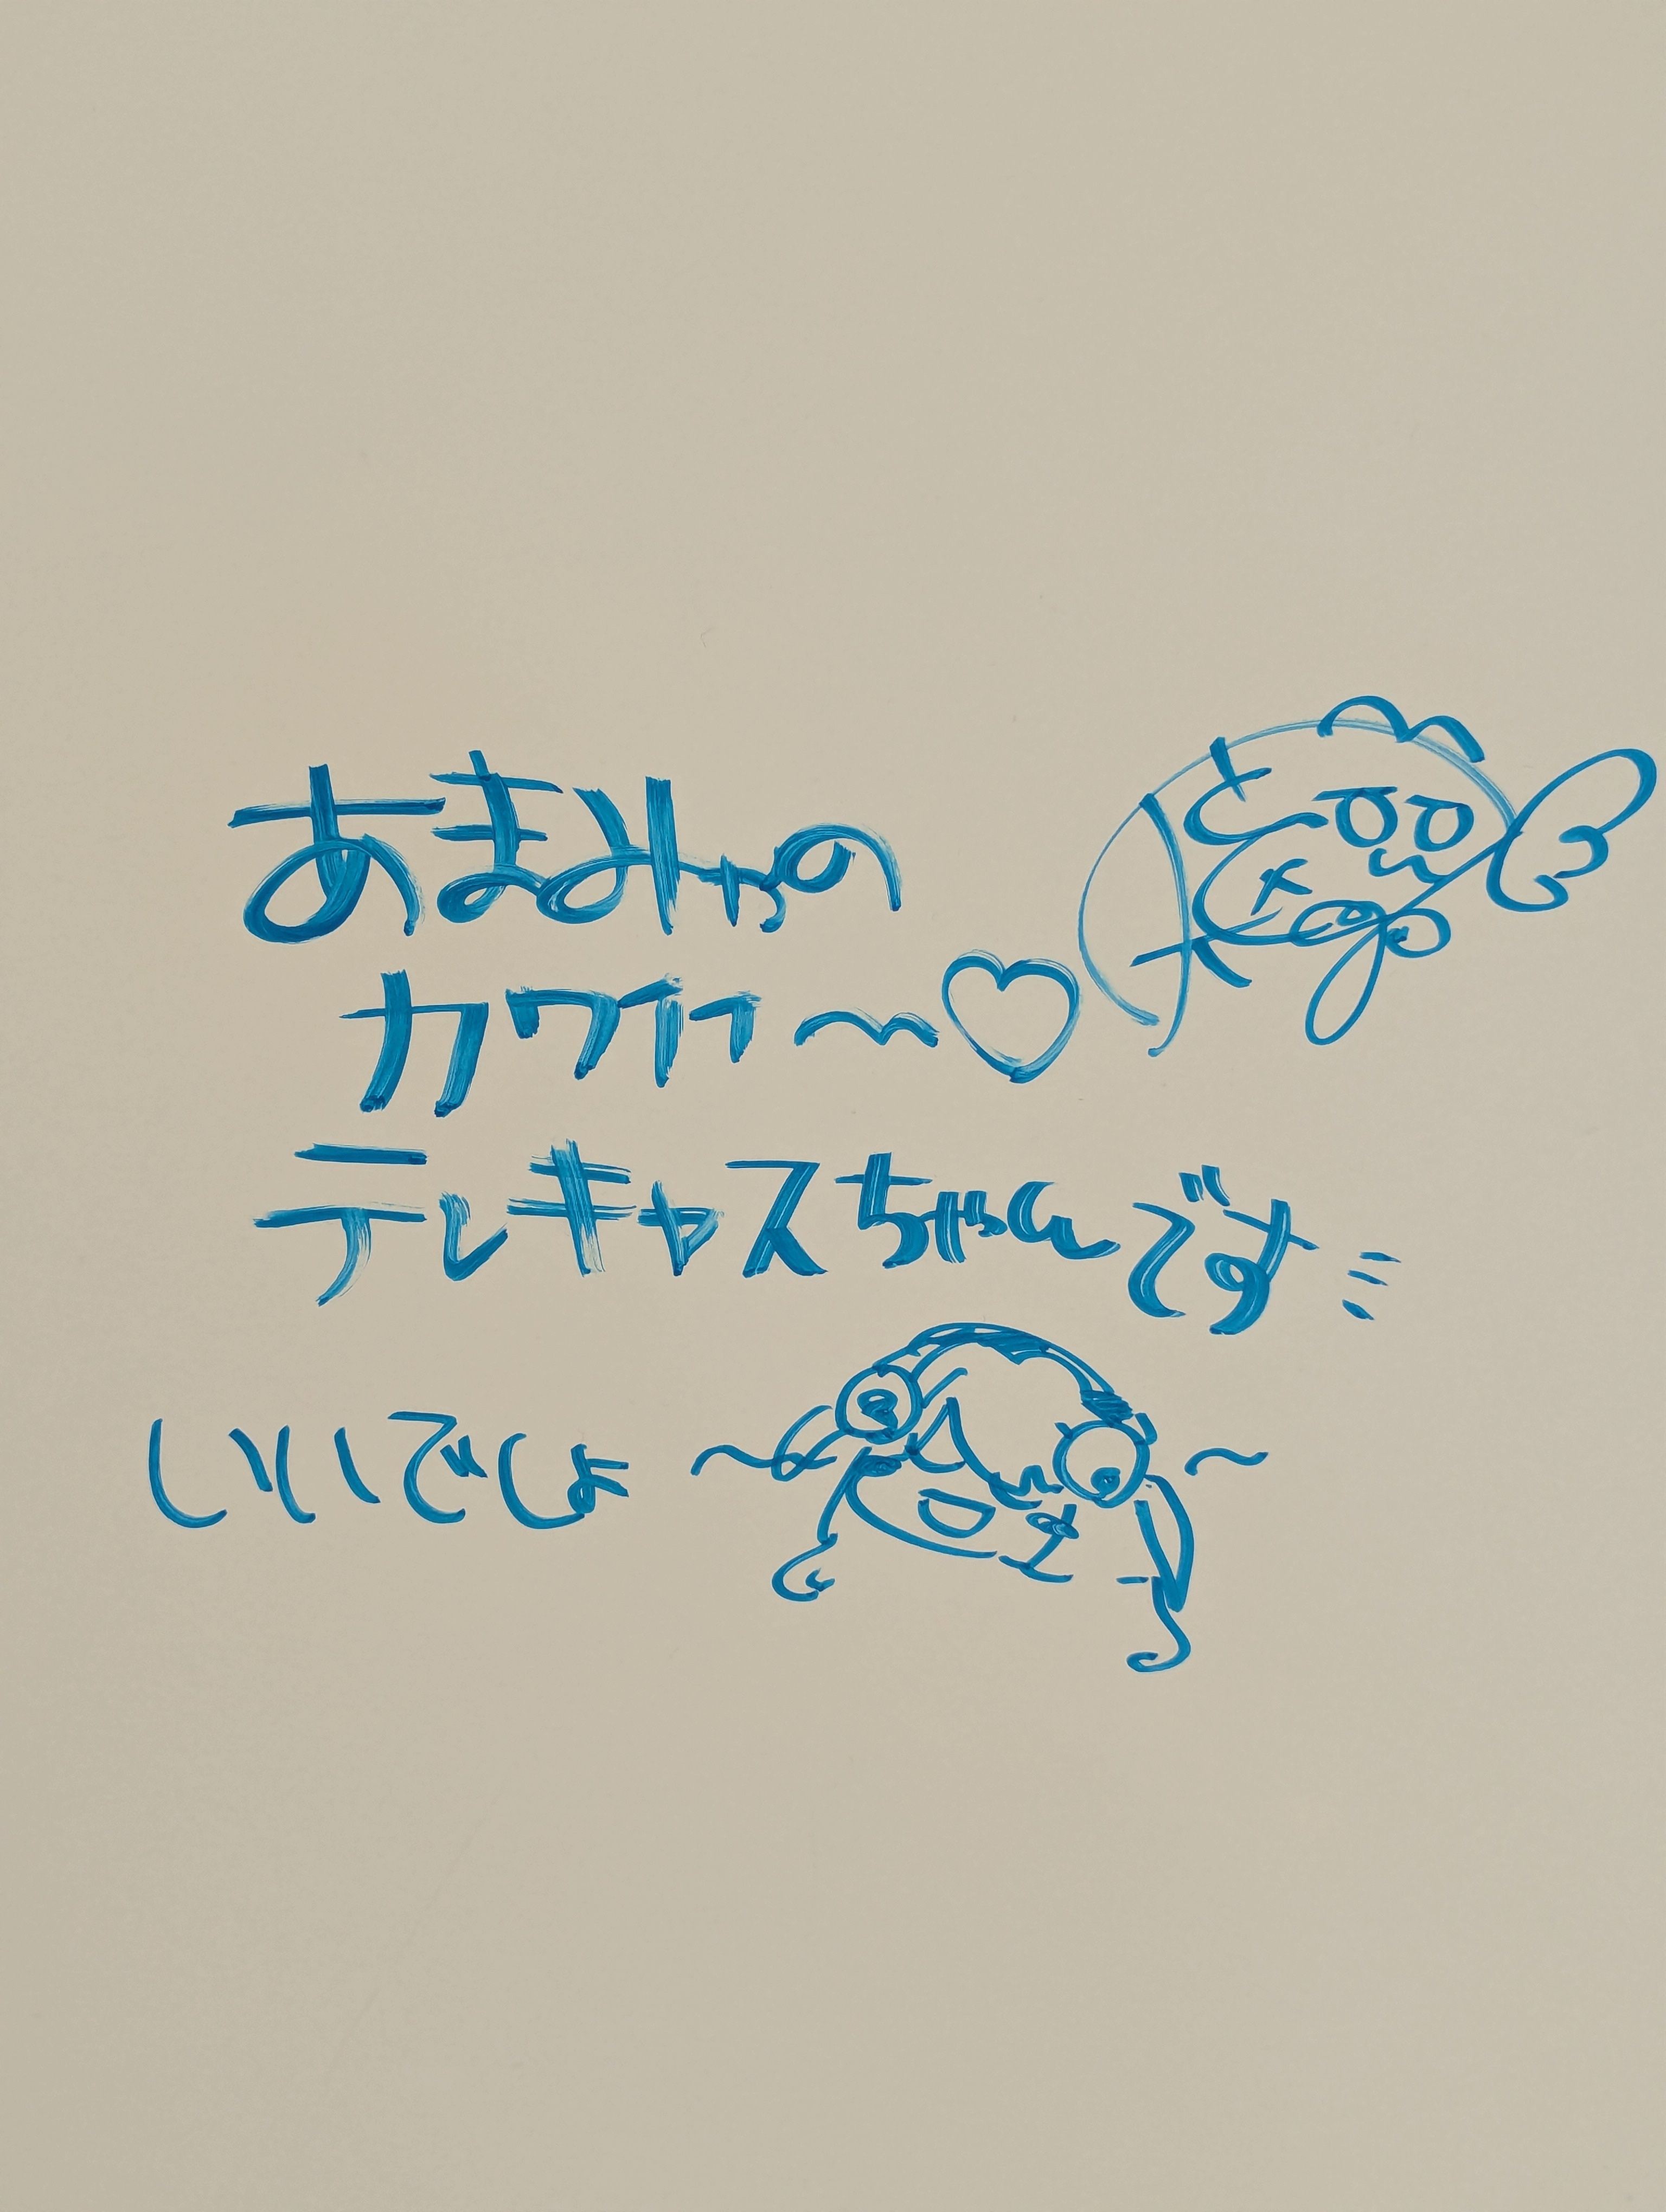 あまみゃの
カワイイ〜♡
テレキャスちゃんです
いいでしょ〜